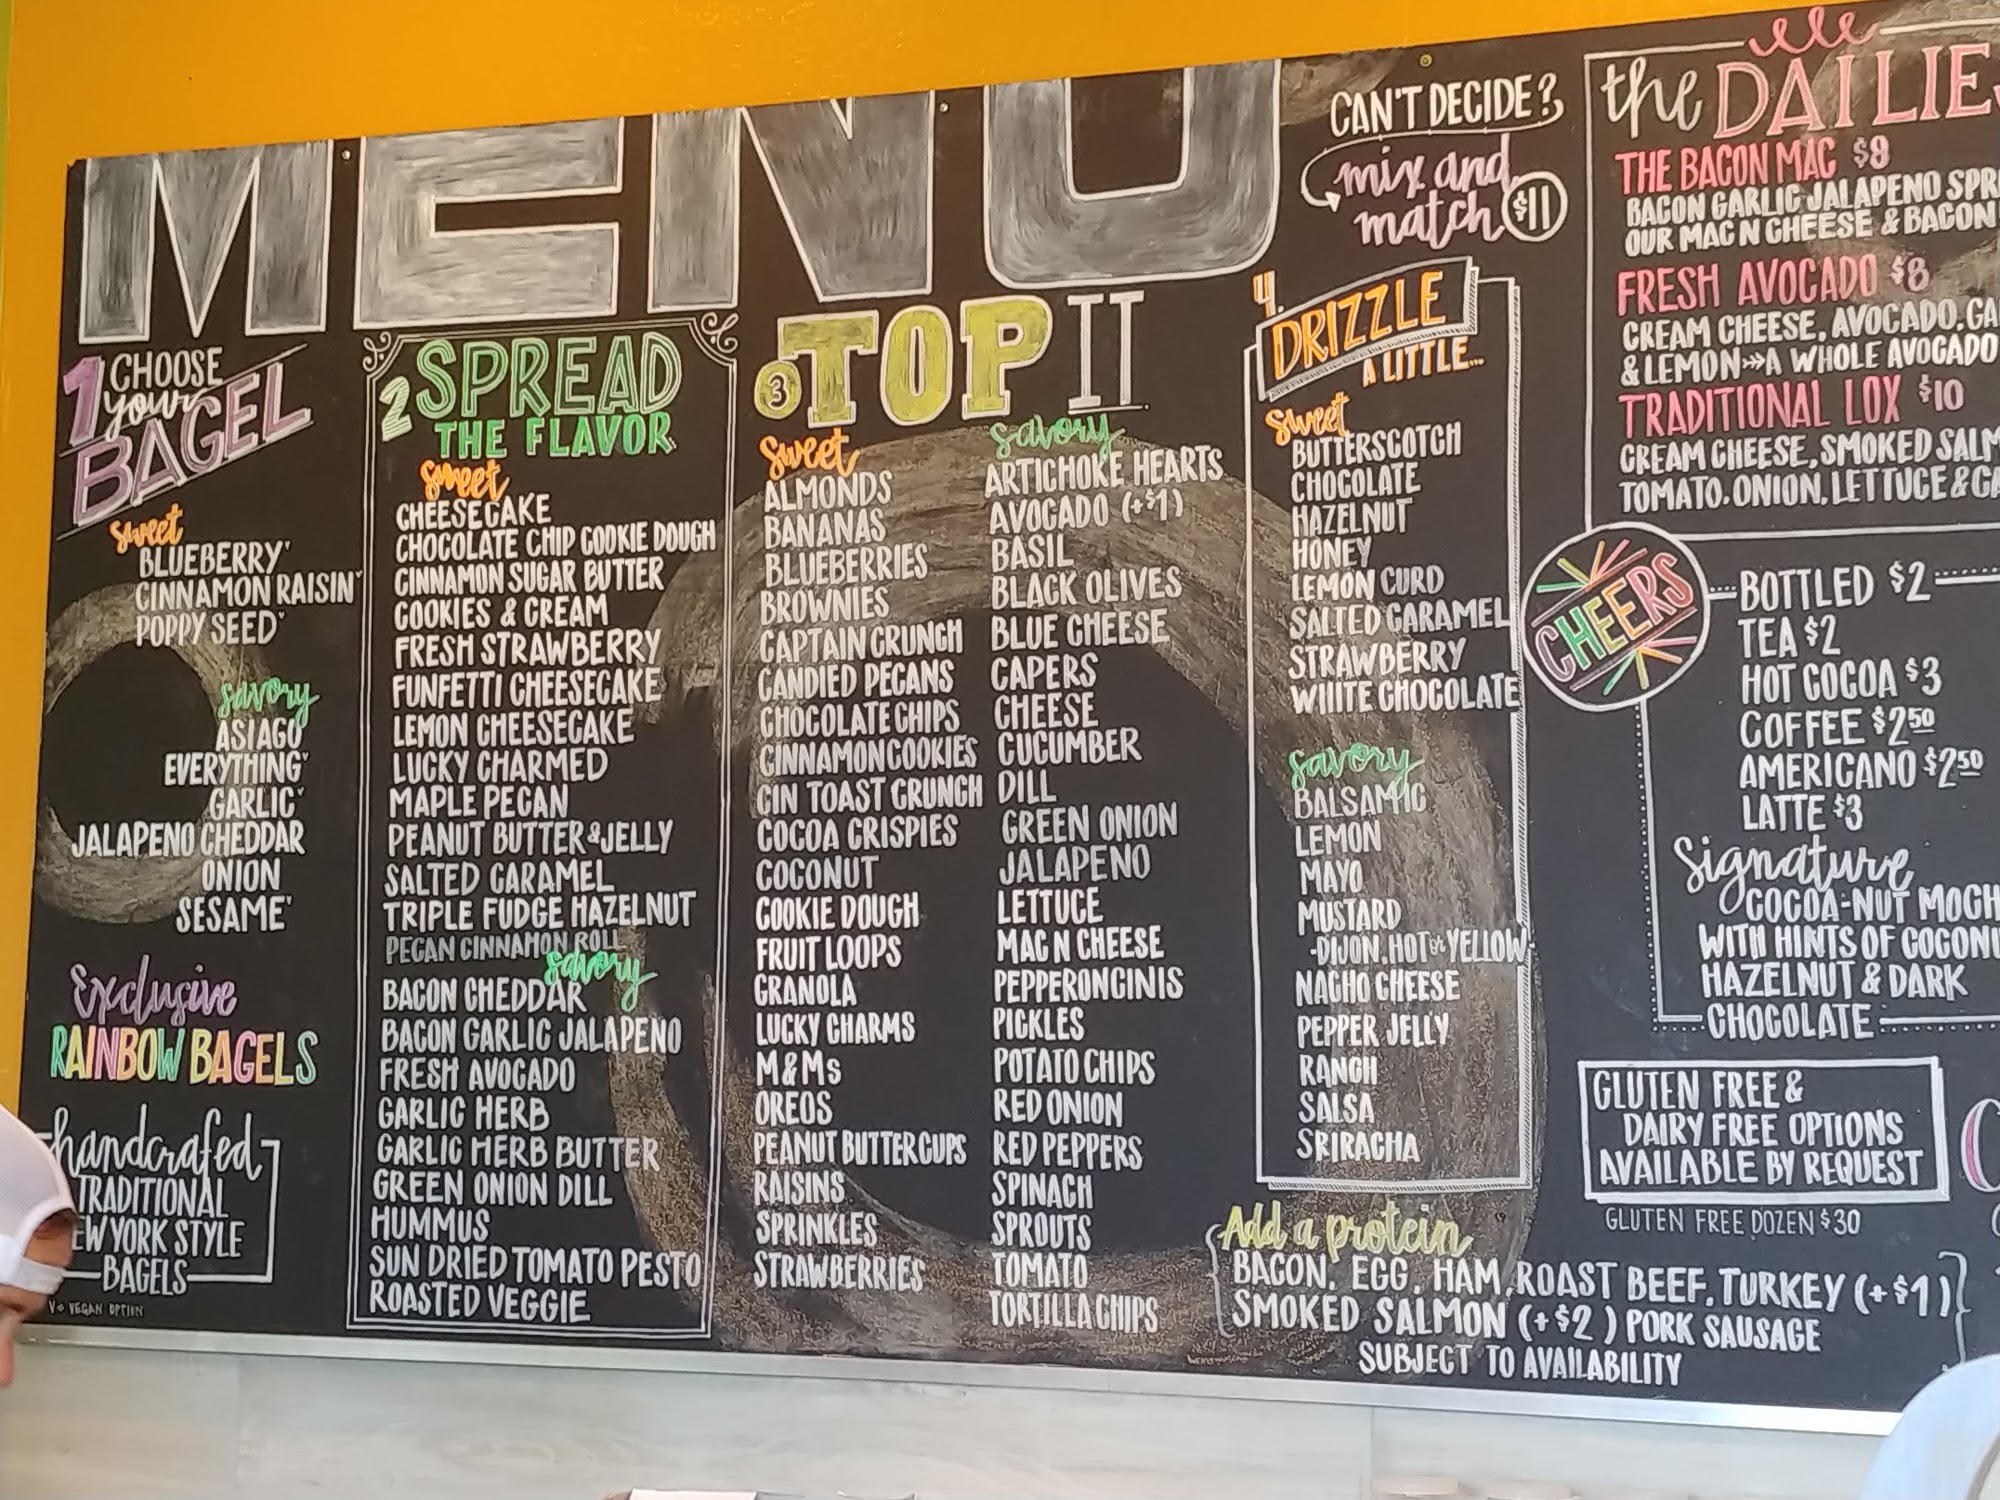 MENU
1 CHOOSE
your
BAGEL
sweet
BLUEBERRY'
CINNAMON RAISIN'
POPPY SEED'
savory
ASIAGO
EVERYTHING'
GARLIC'
JALAPENO CHEDDAR
ONION
SESAME'
Exclusive
RAINBOW BAGELS
handcrafed
TRADITIONAL
EW YORK STYLE
BAGELS
V= VEGAN OPTION
2 SPREAD
THE FLAVOR
sweet
CHEESECAKE
CHOCOLATE CHIP COOKIE DOUGH
CINNAMON SUGAR BUTTER
COOKIES & CREAM
FRESH STRAWBERRY
FUNFETTI CHEESECAKE
LEMON CHEESECAKE
LUCKY CHARMED
MAPLE PECAN
PEANUT BUTTER & JELLY
SALTED CARAMEL
TRIPLE FUDGE HAZELNUT
PECAN CINNAMON ROLL
savory
BACON CHEDDAR
BACON GARLIC JALAPENO
FRESH AVOCADO
GARLIC HERB
GARLIC HERB BUTTER
GREEN ONION DILL
HUMMUS
SUN DRIED TOMATO PESTO
ROASTED VEGGIE
3 TOP IT
sweet
ALMONDS
BANANAS
BLUEBERRIES
BROWNIES
CAPTAIN CRUNCH
CANDIED PECANS
CHOCOLATE CHIPS
CINNAMON COOKIES
CIN TOAST CRUNCH
COCOA CRISPIES
COCONUT
COOKIE DOUGH
FRUIT LOOPS
GRANOLA
LUCKY CHARMS
M&Ms
OREOS
PEANUT BUTTER CUPS
RAISINS
SPRINKLES
STRAWBERRIES
savory
ARTICHOKE HEARTS
AVOCADO (+$1)
BASIL
BLACK OLIVES
BLUE CHEESE
CAPERS
CHEESE
CUCUMBER
DILL
GREEN ONION
JALAPENO
LETTUCE
MAC N CHEESE
PEPPERONCINIS
PICKLES
POTATO CHIPS
RED ONION
RED PEPPERS
SPINACH
SPROUTS
TOMATO
TORTILLA CHIPS
CAN'T DECIDE?
mix and
match $11
4. DRIZZLE
A LITTLE...
sweet
BUTTERSCOTCH
CHOCOLATE
HAZELNUT
HONEY
LEMON CURD
SALTED CARAMEL
STRAWBERRY
WHITE CHOCOLATE
savory
BALSAMIC
LEMON
MAYO
MUSTARD
-DIJON, HOT or YELLOW
NACHO CHEESE
PEPPER JELLY
RANCH
SALSA
SRIRACHA
Add a protein
BACON, EGG, HAM, ROAST BEEF, TURKEY (+$1)
SMOKED SALMON (+$2) PORK SAUSAGE
SUBJECT TO AVAILABILITY
the DAILIE
THE BACON MAC $9
BACON GARLIC JALAPENO SPR
OUR MAC N CHEESE & BACON
FRESH AVOCADO $8
CREAM CHEESE, AVOCADO, GA
& LEMON A WHOLE AVOCADO
TRADITIONAL LOX $10
CREAM CHEESE, SMOKED SALM
TOMATO, ONION, LETTUCE & CA
CHEERS
BOTTLED $2
TEA $2
HOT COCOA $3
COFFEE $2 50
AMERICANO $2 50
LATTE $3
Signature
COCOA-NUT MOCH
WITH HINTS OF COCONU
HAZELNUT & DARK
CHOCOLATE
GLUTEN FREE &
DAIRY FREE OPTIONS
AVAILABLE BY REQUEST
GLUTEN FREE DOZEN $30